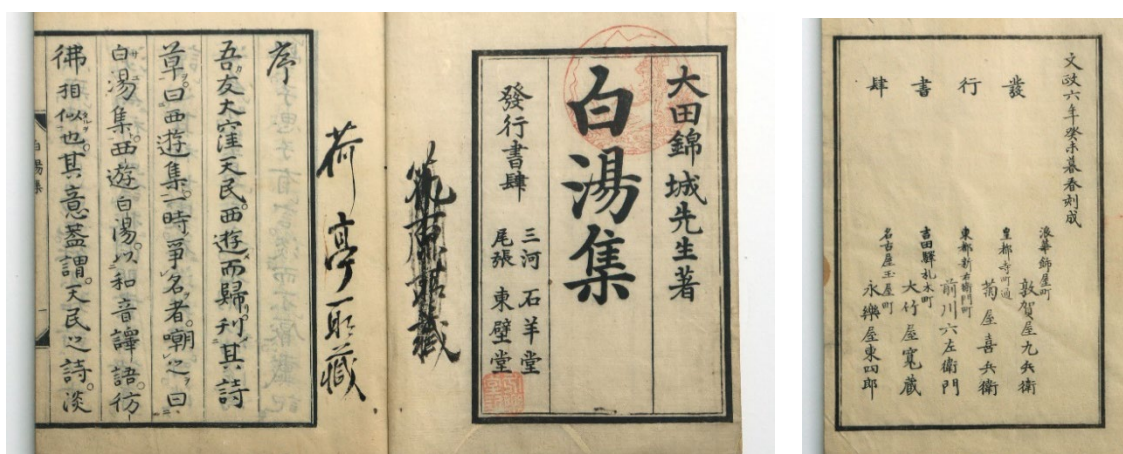 大田錦城先生著
白湯集
發行書肆
三河 石羊堂
尾張 東壁堂
荷亭所藏
序
吾友大窪天民。西遊而歸。刊其詩
草。曰西遊集。一時爭名者。嘲之曰
白湯集。西遊白湯。以和音譯語。彷
彿相似也。其意蓋謂。天民之詩。淡
白湯集
文政六年癸未暮春刻成
發行書肆
浪華飾屋町 敦賀屋九兵衛
皇都寺町通 菊屋喜兵衛
東都新右衛門町 前川六左衛門
吉田驛札木町 大竹屋寛藏
名古屋玉屋町 永樂屋東四郎